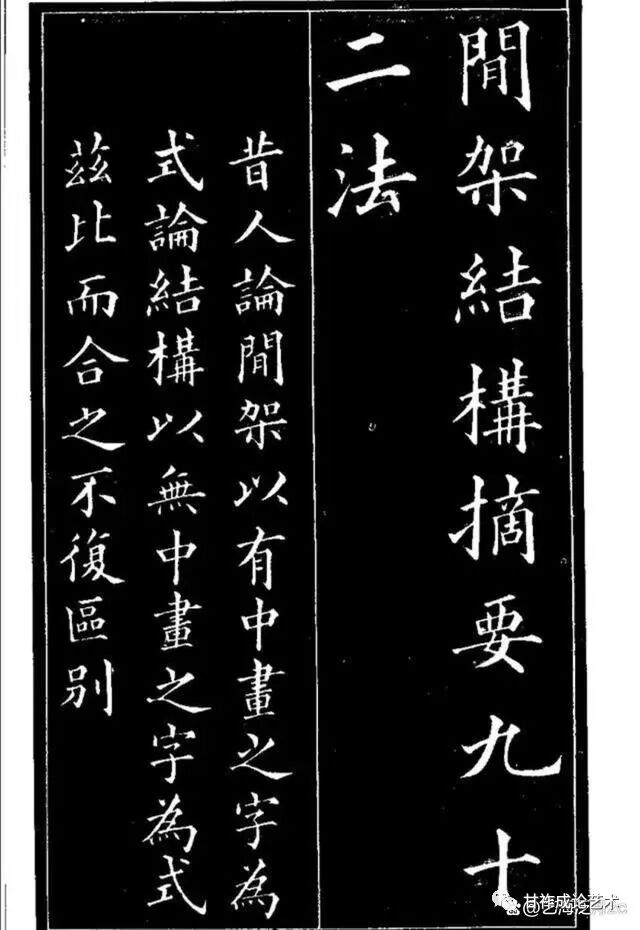 間架結構摘要九十
二法
昔人論間架以有中畫之字為
式論結構以無中畫之字為式
茲比而合之不復區別
甘祚成论艺术